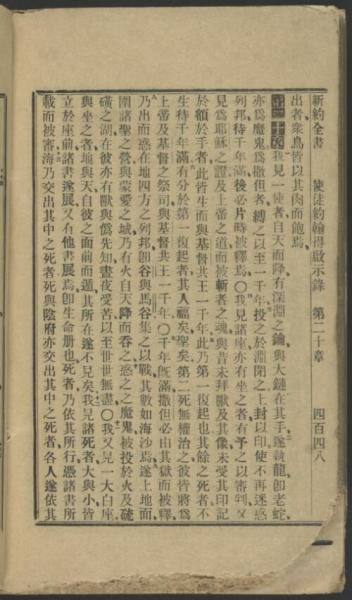 新約全書 使徒約翰得啟示錄 第二十章 四百四八
出者衆鳥皆以其肉而飽焉
第二十章我見一使者自天而降有深淵之鑰與大鏈在其手遂執龍卽老蛇
亦爲魔鬼爲撒但者縛之以至一千年投之於淵閉之上封以印使不再迷惑
列邦待千年滿後必片時被釋焉○我見諸座亦有坐之者有予之以審判又
見爲耶穌之證及上帝之道而被斬者之魂與昔未拜獸及其像未受其印記
於額於手者此皆生而與基督共王一千年此乃第一復起也其餘之死者不
生待千年滿有分於第一復起者其人福矣聖矣第二死無權治之彼皆將爲
上帝及基督之祭司與基督共王一千年○千年旣滿撒但必由其獄而被釋
乃出而惑在地四方之列邦卽谷與馬谷集之以戰其數如海沙焉遂上地面
圍諸聖之營與蒙愛之城乃有火自天降而吞之惑之之魔鬼被投於火及硫
磺之湖在彼亦有獸與僞先知晝夜受苦以至世世無盡○我又見一大白座
與坐之者地與天自彼之面前而遁其所在遂不見矣我見諸死者大與小皆
立於座前諸書遂展又有他書展焉卽生命册也死者乃依其所行憑諸書所
載而被審海乃交出其中之死者死與陰府亦交出其中之死者各人遂依其